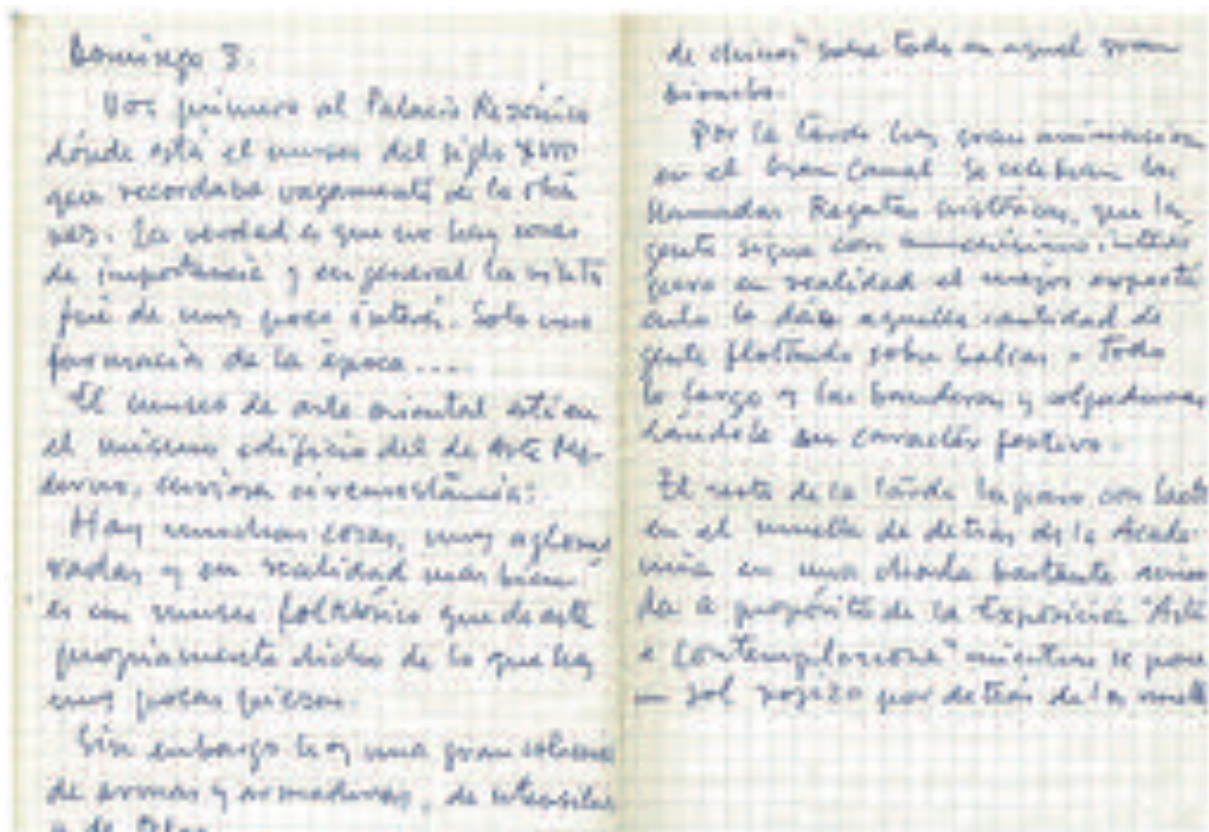 Domingo 3.
Voy primero al Palacio Rezónico
dónde está el museo del siglo XVIII
que recordaba vagamente de la otra
vez. La verdad es que no hay cosas
de importancia y en general la visita
fué de muy poco interés. Solo una
de la época ....
El museo de arte oriental está en
el mismo edificio del de Arte Mo-
derno, curiosa circunstancia:
Hay muchas cosas, muy aglome
radas y en realidad más bien
es un museo folklórico que de arte
propiamente dicho de lo que hay
muy pocas piezas.
Sin embargo hay una gran
de armas y armaduras, de utensilios
y de telas
de chinos" sobre todo en aquel gran
biombo.
Por la tarde hay gran animación
en el Gran Canal. Se celebran las
llamadas Regatas históricas, que la
gente sigue con interés
pero en realidad el mejor espectá
culo lo da aquella cantidad de
gente flotando sobre balsas a todo
lo largo y las banderas y colgaduras
dándole su carácter festivo.
El resto de la tarde la paso con
en el muelle de detrás de la Acade-
mia en una charla bastante
da a propósito de la Exposición "Arte
e Contemplazione" mientras se pone
un sol rojizo por detrás de los